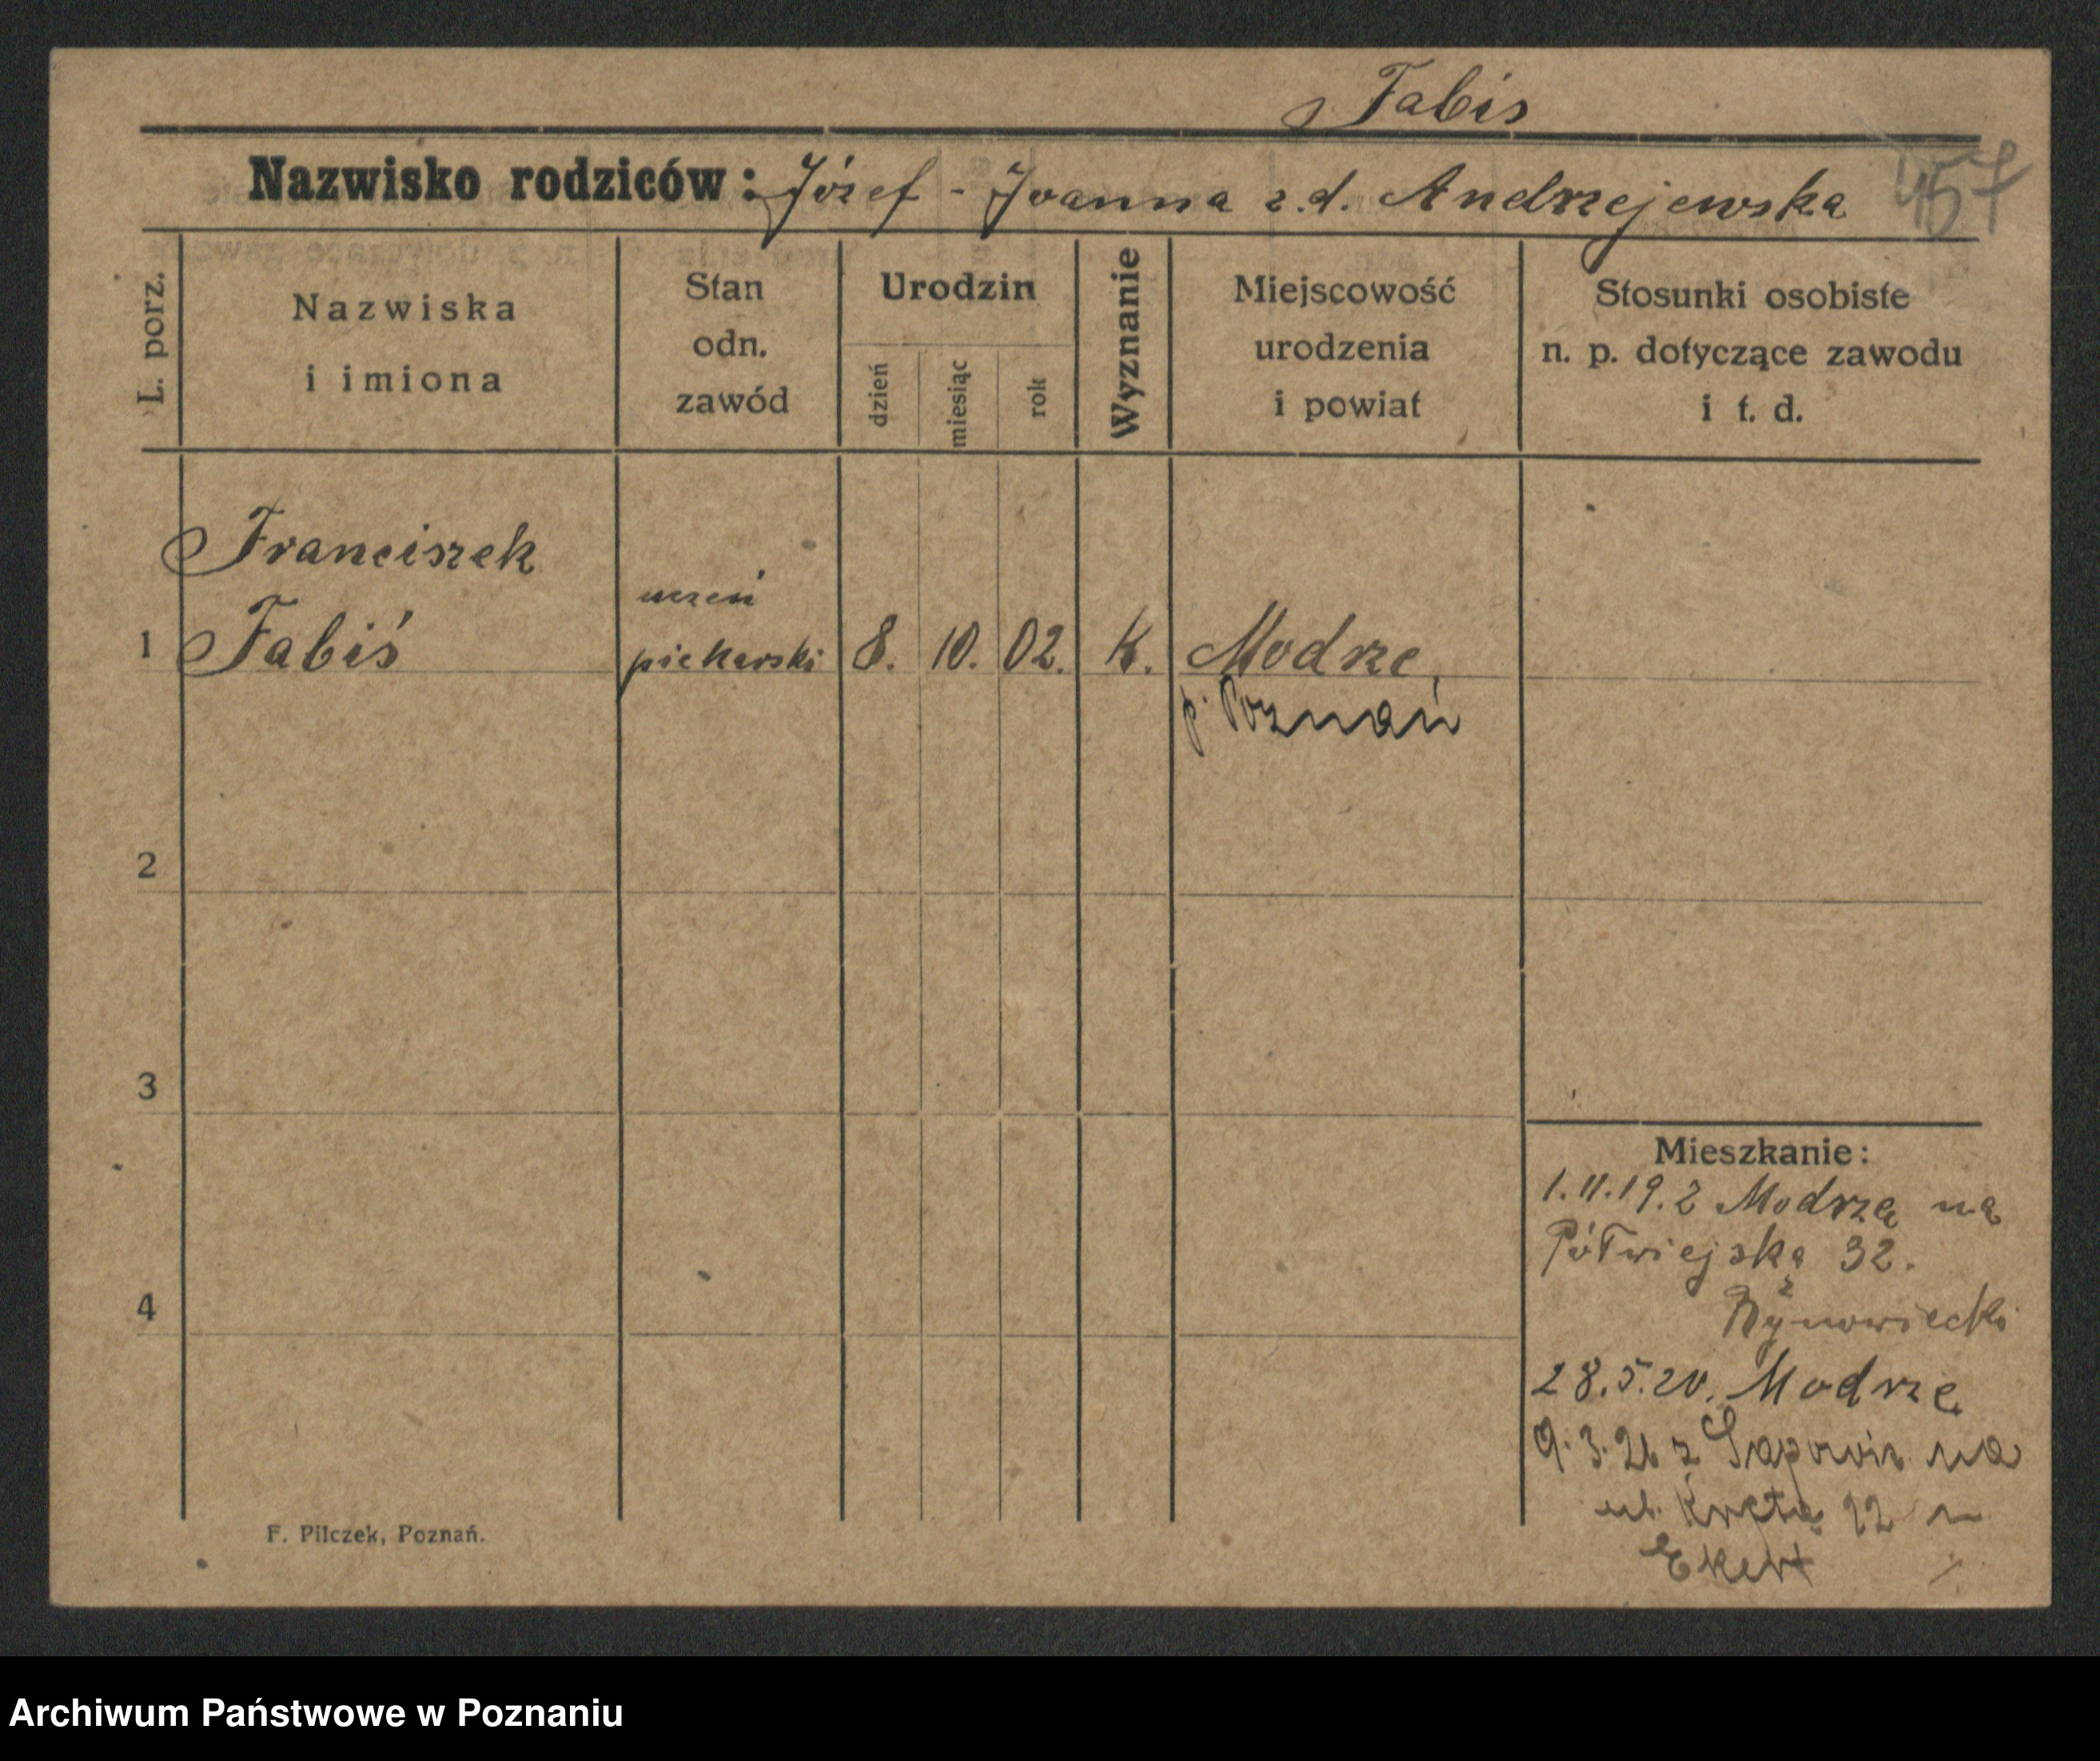 Fabis
Nazwisko rodziców: Józef - Joanna z.d. Andrzejewska
457
L. porz.
Nazwiska
i imiona
Stan
odn.
zawód
Urodzin
dzień
miesiąc
rok
Wyznanie
Miejscowość
urodzenia
i powiat
Stosunki osobiste
n. p. dotyczące zawodu
i t. d.
Franciszek
uczeń
1 Fabiś piekarski 8. 10. 02. K. Modrze,
p. Poznań
2
3
Mieszkanie:
1.11.19. z Modrza na
Półwiejską 32.
4
28.5.20. Modrze
9.3.26 z na
ul. Krętą 22 u
Ekert
F. Pilczek, Poznań.
Archiwum Państwowe w Poznaniu